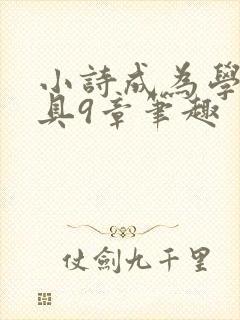 小詩成為學
具9章筆趣
仗劍九千里